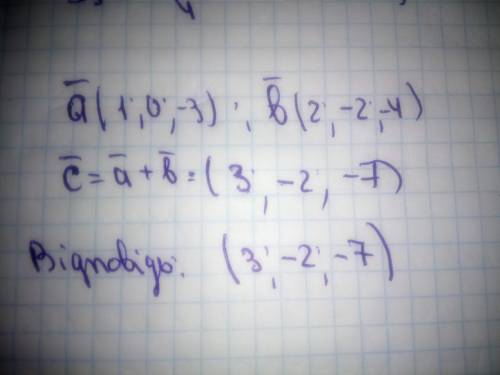 a̅(1; 0; -3); b̅(2; -2; -4)
c̅ = a̅ + b̅ = (3; -2; -7)
Відповідь: (3; -2; -7)